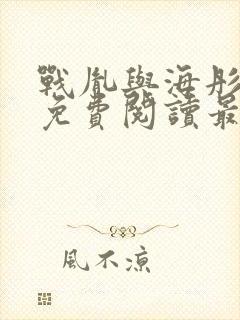 戰胤與海彤
免費閱讀最
風不涼